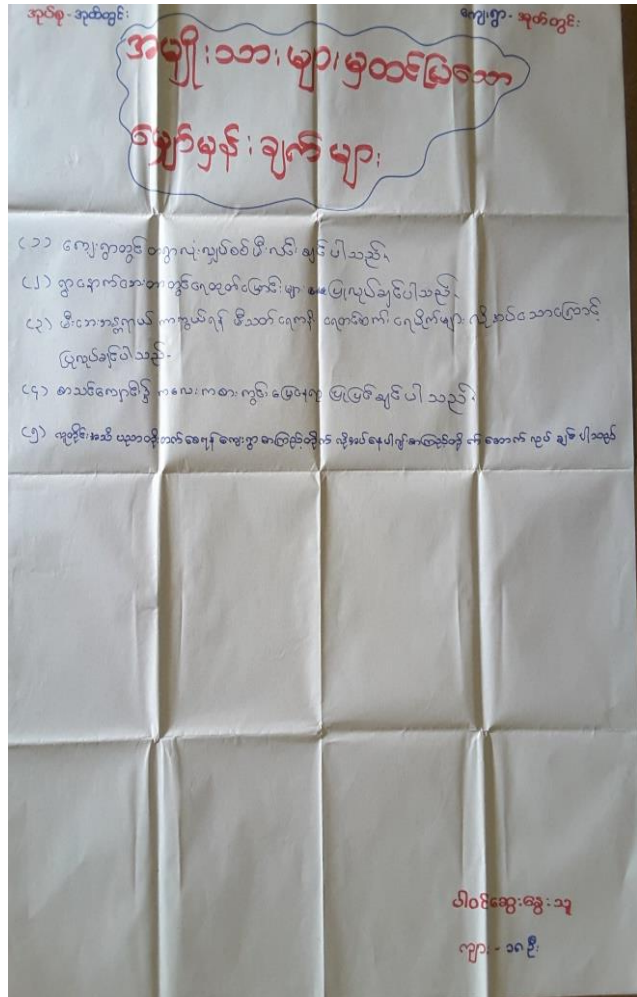 အုပ်စု - အုတ်တွင်း ကျေးရွာ - အုတ်တွင်း
အမျိုးသားများမှတင်ပြသော
မျှော်မှန်းချက်များ
(၁) ကျေးရွာတွင် တရွာလုံးလျှပ်စစ်မီးလင်းချင်ပါသည်။
(၂) ရွာနောက်ဖေးတာတွင်ရေထုတ်မြောင်းများ ပြုလုပ်ချင်ပါသည်။
(၃) မီးဘေးအန္တရာယ် ကာကွယ်ရန် မီးသတ်ရေကန် ရေတင်စက်၊ ရေပိုက်များ လိုအပ်သောကြောင့်
ပြုလုပ်ချင်ပါသည်။
(၄) စာသင်ကျောင်း၌ ကလေးကစားကွင်း မြေနေရာ ပြုပြင်ချင်ပါသည်။
(၅) လူတိုင်းအသိ ပညာတိုးတက်စေရန် ကျေးရွာစာကြည့်တိုက် လိုအပ်နေပါ၍စာကြည့်တိုက်ဆောက်လုပ်ချင်ပါသည်
ပါဝင်ဆွေးနွေးသူ
ကျား - ၁၈ ဦး